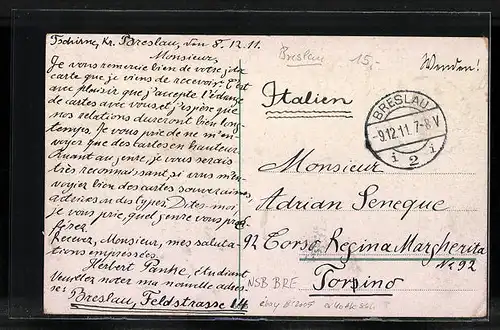 Tschirne, Kr. Breslau, den 8.12.11.
Monsieur,
Je vous remercie bien de votre jolie
carte que je viens de recevoir. C'est
avec plaisir que j'accepte l'échange
de cartes avec vous et j'espère que
nos relations dureront bien long-
temps. Je vous prie de ne m'en-
voyer que des cartes en hauteur.
Quant au genre, je vous serais
très reconnaissant si vous m'en-
voyiez bien des cartes
et des types. Dites-moi,
je vous prie, quel genre vous pré-
férez.
Recevez, Monsieur, mes saluta-
tions empressées
Herbert Panke, étudiant
Veuillez notez ma nouvelle adres-
se:
Breslau, Feldstrasse 14
Breslau
15,-
Wenden!
Italien
BRESLAU
-9.12.11.7-8V
i 2 i
Monsieur
Adrian Seneque
92 Corso Regina Margherita
Nr. 92
Torino
NSB BRE